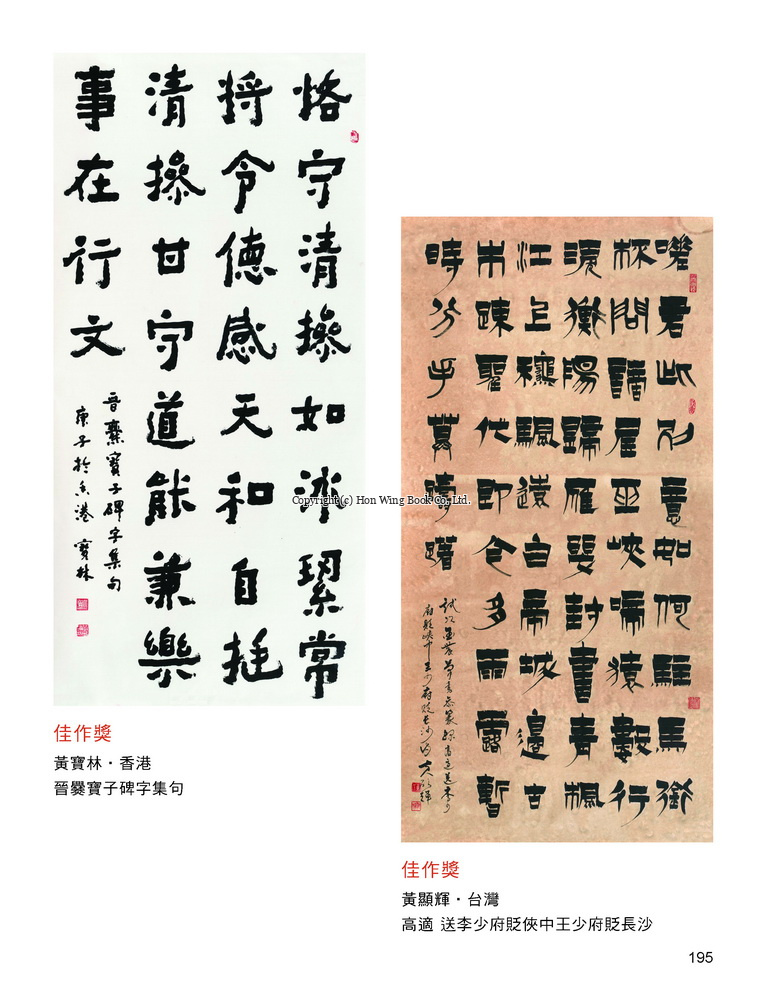 恪守清操如冰絜常
將令德感天和自挺
清操甘守道能兼樂
事在行文
晉爨寶子碑字集句
庚子於香港 寶林
佳作獎
黃寶林・香港
晉爨寶子碑字集句
嗟君此別意如何駐馬銜
杯問謫居巫峽啼猿數行
淚衡陽歸雁幾封書青楓
江上秋帆遠白帝城邊古
木疎聖代即今多雨露暫
時分手莫躊躇
佳作獎
黃顯輝・台灣
高適 送李少府貶俠中王少府貶長沙
Copyright (c) Hon Wing Book Co. Ltd.
195